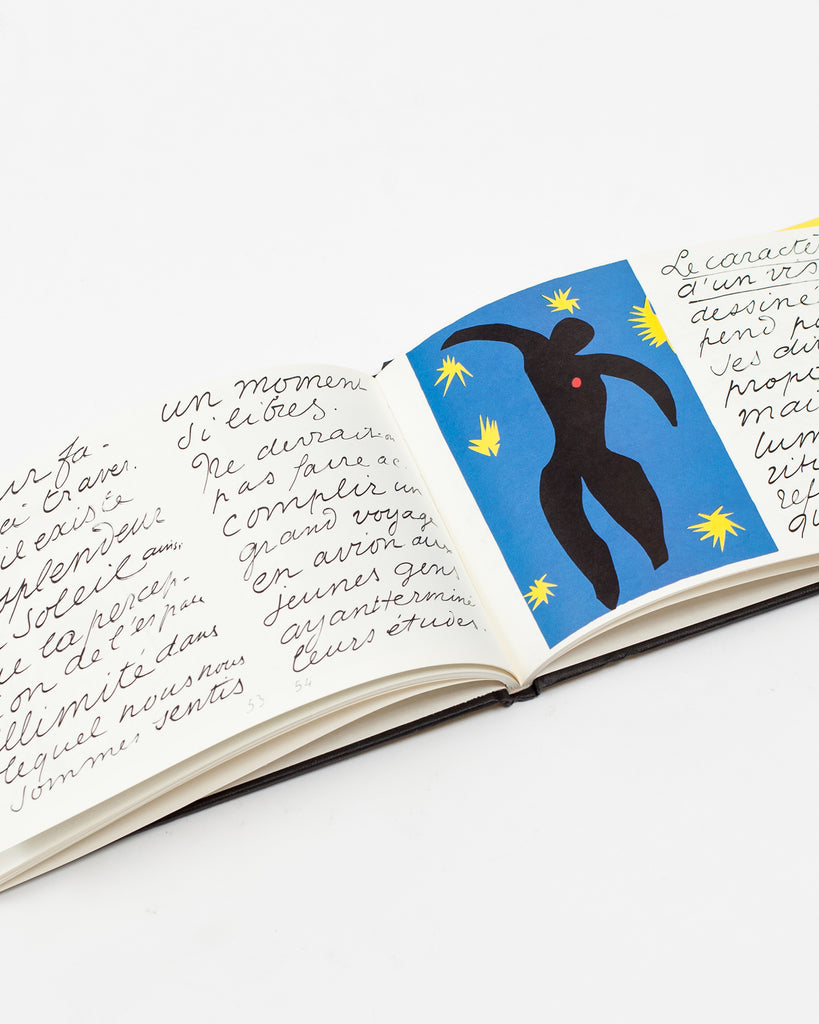 ur fa-
à traver.
il existe
splendeur
soleil ainsi
ue la percep-
on de l'espace
illimité dans
lequel nous nous
sommes sentis
53
un moment
si libres.
Ne devrait-on
pas faire ac-
complir un
grand voyage
en avion aux
jeunes gens
ayant terminé
leurs études.
54
Le caractè
d'un vis
dessiné
pend pa
ses div
propo
mai
lum
ritu
ref
qu